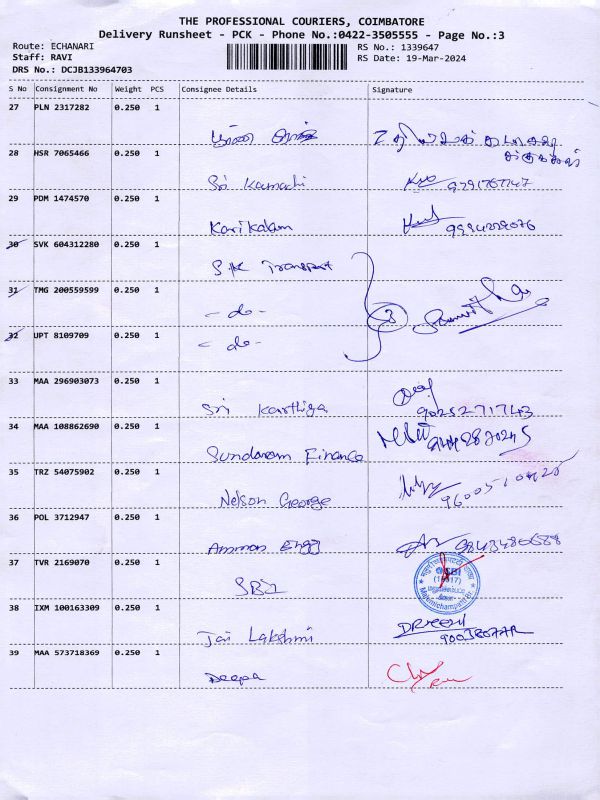 THE PROFESSIONAL COURIERS, COIMBATORE
Delivery Runsheet - PCK - Phone No.:0422-3505555 - Page No.:3
Route: ECHANARI
Staff: RAVI
DRS No.: DCJB133964703
RS No.: 1339647
RS Date: 19-Mar-2024
S No Consignment No Weight PCS Consignee Details Signature
27 PLN 2317282 0.250 1
28 HSR 7065466 0.250 1
Sri Kamachi
29 PDM 1474570 0.250 1
Karikalam 9994229076
30 SVK 604312280 0.250 1
SK Transport
31 TMG 200559599 0.250 1
- do - 3
32 UPT 8109709 0.250 1
- do -
33 MAA 296903073 0.250 1
Sri Karthiga 9025271743
34 MAA 108862690 0.250 1
Sundaram Finance
35 TRZ 54075902 0.250 1
Nelson George
36 POL 3712947 0.250 1
Amman Engg 9843480688
37 TVR 2169070 0.250 1
SBI SBI
38 IXM 100163309 0.250 1
Jai Lakshmi
39 MAA 573718369 0.250 1
Deepa